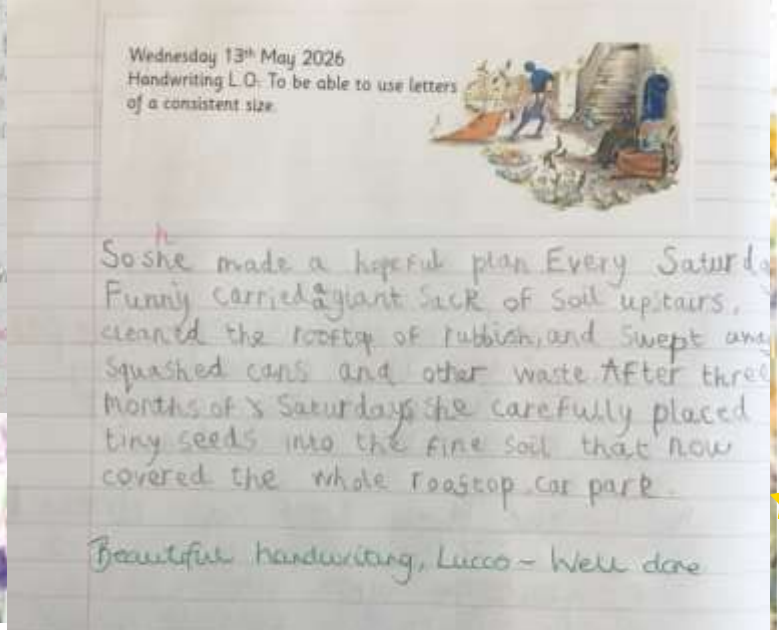 Wednesday 13th May 2026
Handwriting L.O. To be able to use letters
of a consistent size.
h
So she made a hopeful plan Every Saturda
Funny carried a giant sack of soil upstairs,
cleaned the rooftop of rubbish, and swept away
squashed cans and other waste After three
months of Saturdays she carefully placed
tiny seeds into the fine soil that now
covered the whole rooftop car park.
Beautiful handwriting, Lucca - Well done